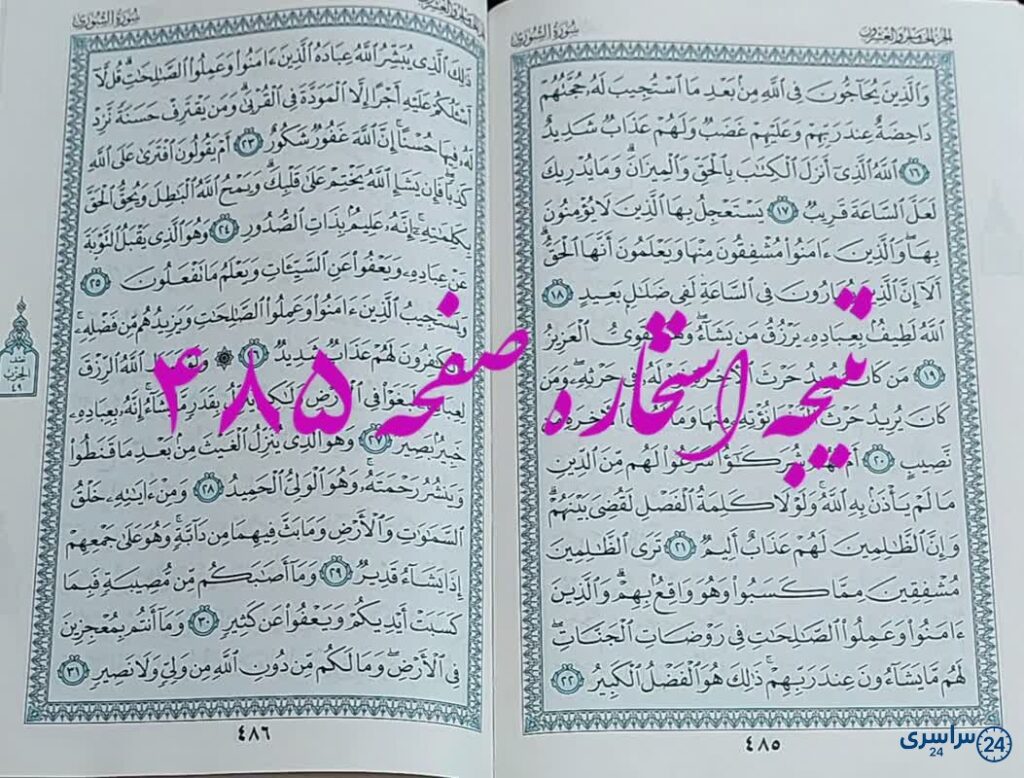 الجزء الخامس والعشرون
سورة الشورى
وَالَّذِينَ يُحَآجُّونَ فِي اللَّهِ مِنْ بَعْدِ مَا اسْتُجِيبَ لَهُ حُجَّتُهُمْ
دَاحِضَةٌ عِنْدَ رَبِّهِمْ وَعَلَيْهِمْ غَضَبٌ وَلَهُمْ عَذَابٌ شَدِيدٌ
١٦ اللَّهُ الَّذِي أَنْزَلَ الْكِتَابَ بِالْحَقِّ وَالْمِيزَانَ وَمَا يُدْرِيكَ
لَعَلَّ السَّاعَةَ قَرِيبٌ ١٧ يَسْتَعْجِلُ بِهَا الَّذِينَ لَا يُؤْمِنُونَ
بِهَا وَالَّذِينَ ءَامَنُوا مُشْفِقُونَ مِنْهَا وَيَعْلَمُونَ أَنَّهَا الْحَقُّ
أَلَا إِنَّ الَّذِينَ يُمَارُونَ فِي السَّاعَةِ لَفِي ضَلَالٍ بَعِيدٍ ١٨
اللَّهُ لَطِيفٌ بِعِبَادِهِ يَرْزُقُ مَنْ يَشَاءُ وَهُوَ الْقَوِيُّ الْعَزِيزُ
١٩ مَنْ كَانَ يُرِيدُ حَرْثَ الْآخِرَةِ نَزِدْ لَهُ فِي حَرْثِهِ وَمَنْ
كَانَ يُرِيدُ حَرْثَ الدُّنْيَا نُؤْتِهِ مِنْهَا وَمَا لَهُ فِي الْآخِرَةِ مِنْ
نَصِيبٍ ٢٠ أَمْ لَهُمْ شُرَكَاءُ شَرَعُوا لَهُمْ مِنَ الدِّينِ
مَا لَمْ يَأْذَنْ بِهِ اللَّهُ وَلَوْلَا كَلِمَةُ الْفَصْلِ لَقُضِيَ بَيْنَهُمْ
وَإِنَّ الظَّالِمِينَ لَهُمْ عَذَابٌ أَلِيمٌ ٢١ تَرَى الظَّالِمِينَ
مُشْفِقِينَ مِمَّا كَسَبُوا وَهُوَ وَاقِعٌ بِهِمْ وَالَّذِينَ
ءَامَنُوا وَعَمِلُوا الصَّالِحَاتِ فِي رَوْضَاتِ الْجَنَّاتِ
لَهُمْ مَا يَشَاءُونَ عِنْدَ رَبِّهِمْ ذَلِكَ هُوَ الْفَضْلُ الْكَبِيرُ ٢٢
٤٨٥
الجزء الخامس والعشرون
سورة الشورى
ذَلِكَ الَّذِي يُبَشِّرُ اللَّهُ عِبَادَهُ الَّذِينَ ءَامَنُوا وَعَمِلُوا الصَّالِحَاتِ قُلْ لَا
أَسْأَلُكُمْ عَلَيْهِ أَجْرًا إِلَّا الْمَوَدَّةَ فِي الْقُرْبَى وَمَنْ يَقْتَرِفْ حَسَنَةً نَزِدْ
لَهُ فِيهَا حُسْنًا إِنَّ اللَّهَ غَفُورٌ شَكُورٌ ٢٣ أَمْ يَقُولُونَ افْتَرَى عَلَى اللَّهِ
كَذِبًا فَإِنْ يَشَإِ اللَّهُ يَخْتِمْ عَلَى قَلْبِكَ وَيَمْحُ اللَّهُ الْبَاطِلَ وَيُحِقُّ الْحَقَّ
بِكَلِمَاتِهِ إِنَّهُ عَلِيمٌ بِذَاتِ الصُّدُورِ ٢٤ وَهُوَ الَّذِي يَقْبَلُ التَّوْبَةَ
عَنْ عِبَادِهِ وَيَعْفُو عَنِ السَّيِّئَاتِ وَيَعْلَمُ مَا تَفْعَلُونَ ٢٥
وَيَسْتَجِيبُ الَّذِينَ ءَامَنُوا وَعَمِلُوا الصَّالِحَاتِ وَيَزِيدُهُمْ مِنْ فَضْلِهِ
وَالْكَافِرُونَ لَهُمْ عَذَابٌ شَدِيدٌ ٢٦ وَلَوْ بَسَطَ اللَّهُ الرِّزْقَ
لِعِبَادِهِ لَبَغَوْا فِي الْأَرْضِ وَلَكِنْ يُنَزِّلُ بِقَدَرٍ مَا يَشَاءُ إِنَّهُ بِعِبَادِهِ
خَبِيرٌ بَصِيرٌ ٢٧ وَهُوَ الَّذِي يُنَزِّلُ الْغَيْثَ مِنْ بَعْدِ مَا قَنَطُوا
وَيَنْشُرُ رَحْمَتَهُ وَهُوَ الْوَلِيُّ الْحَمِيدُ ٢٨ وَمِنْ ءَايَاتِهِ خَلْقُ
السَّمَاوَاتِ وَالْأَرْضِ وَمَا بَثَّ فِيهِمَا مِنْ دَابَّةٍ وَهُوَ عَلَى جَمْعِهِمْ
إِذَا يَشَاءُ قَدِيرٌ ٢٩ وَمَا أَصَابَكُمْ مِنْ مُصِيبَةٍ فَبِمَا
كَسَبَتْ أَيْدِيكُمْ وَيَعْفُو عَنْ كَثِيرٍ ٣٠ وَمَا أَنْتُمْ بِمُعْجِزِينَ
فِي الْأَرْضِ وَمَا لَكُمْ مِنْ دُونِ اللَّهِ مِنْ وَلِيٍّ وَلَا نَصِيرٍ ٣١
٤٨٦
نصف
الحزب
٤٩
نتیجه استخاره صفحه ۴۸۵
سراسری 24
24